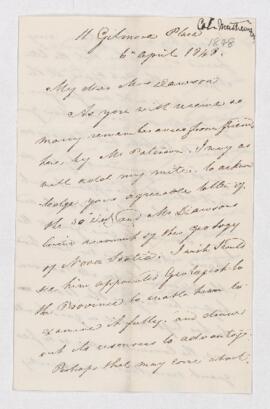 11 Gilmore Place
1848
6th April 1848.
My dear Mrs Dawson
As you will receive so
many remembrances from friends
here, by Mr Paterson. I may as
well add my mite, to acknow
ledge your agreeable letter of
the 30 and Mr Dawsons
account of the geology
of Nova Scotia. I wish I could
see him appointed Geologist to
the Province to enable him to
examine it fully, and
out its resources to advantage.
Perhaps that may come about